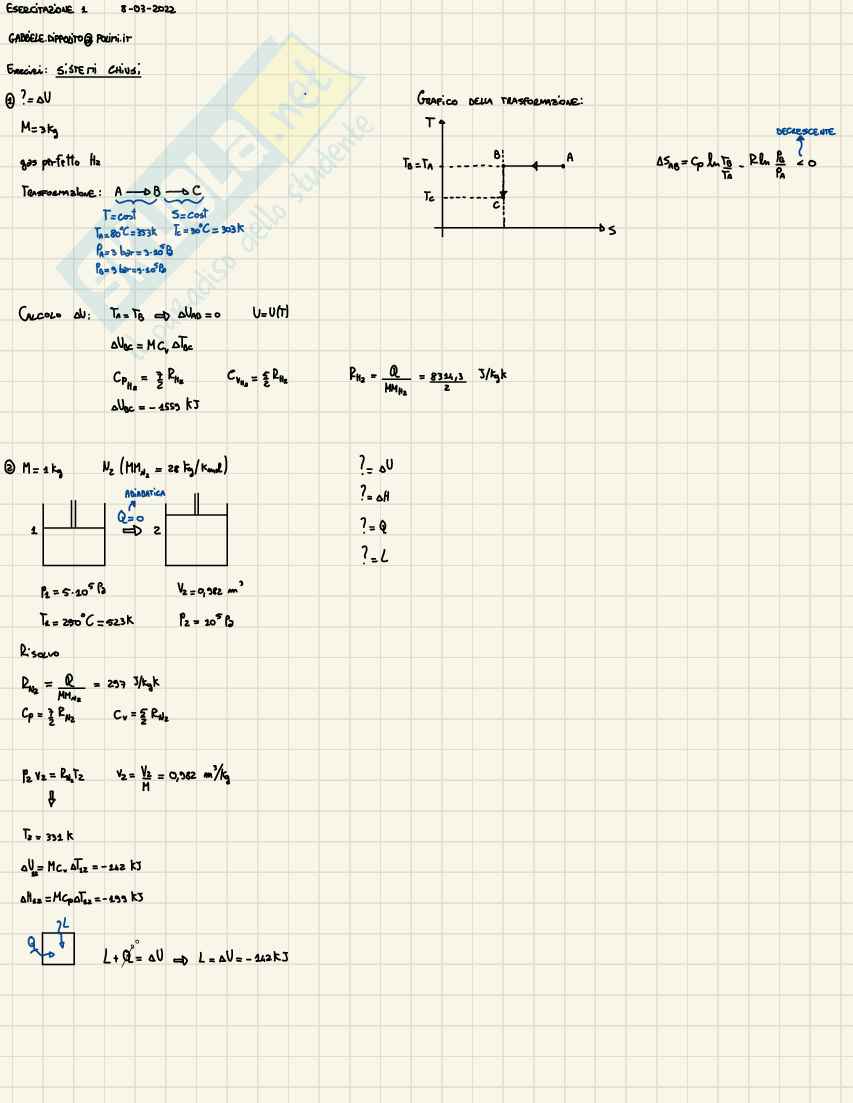 ESERCITAZIONE 1 8-03-2022
GABRIELE.DIPPOLITO@POLIMI.IT
Esercizi: SISTEMI CHIUSI
① ?=ΔU
M=3kg
gas perfetto H2
TRASFORMAZIONE: A → B → C
T=cost S=cost
TA=80°C=353K TC=30°C=303K
PA=3 bar=3·10^5 Pa
PB=9 bar=9·10^5 Pa
GRAFICO DELLA TRASFORMAZIONE:
T
TB=TA
B
A
TC
C
S
DECRESCENTE
ΔSAB=CP ln TB/TA - R ln PB/PA < 0
CALCOLO ΔU: TA=TB ⇒ ΔUAB=0 U=U(T)
ΔUBC=MCvΔTBC
CPH2 = 7/2 RH2 CVH2 = 5/2 RH2 RH2 = R/MMH2 = 8314,3/2 J/kgK
ΔUBC=-1559 KJ
② M=1kg N2 (MMN2 = 28 kg/kmol)
?=ΔU
?=ΔH
?=Q
?=L
ADIABATICA
Q=0
1 ⇒ 2
P1=5·10^5 Pa V2=0,982 m³
T1=250°C=523K P2=10^5 Pa
RISOLVO
RN2 = R/MMN2 = 297 J/kgK
CP=7/2 RN2 CV=5/2 RN2
P2 v2=RN2T2 v2=V2/M=0,982 m³/kg
⇓
T2=331K
ΔU12=MCvΔT12=-142 KJ
ΔH12=MCPΔT12=-199 KJ
L
Q
L+Q=ΔU ⇒ L=ΔU=-142KJ
0
SKUOLA.net
il paradiso dello studente